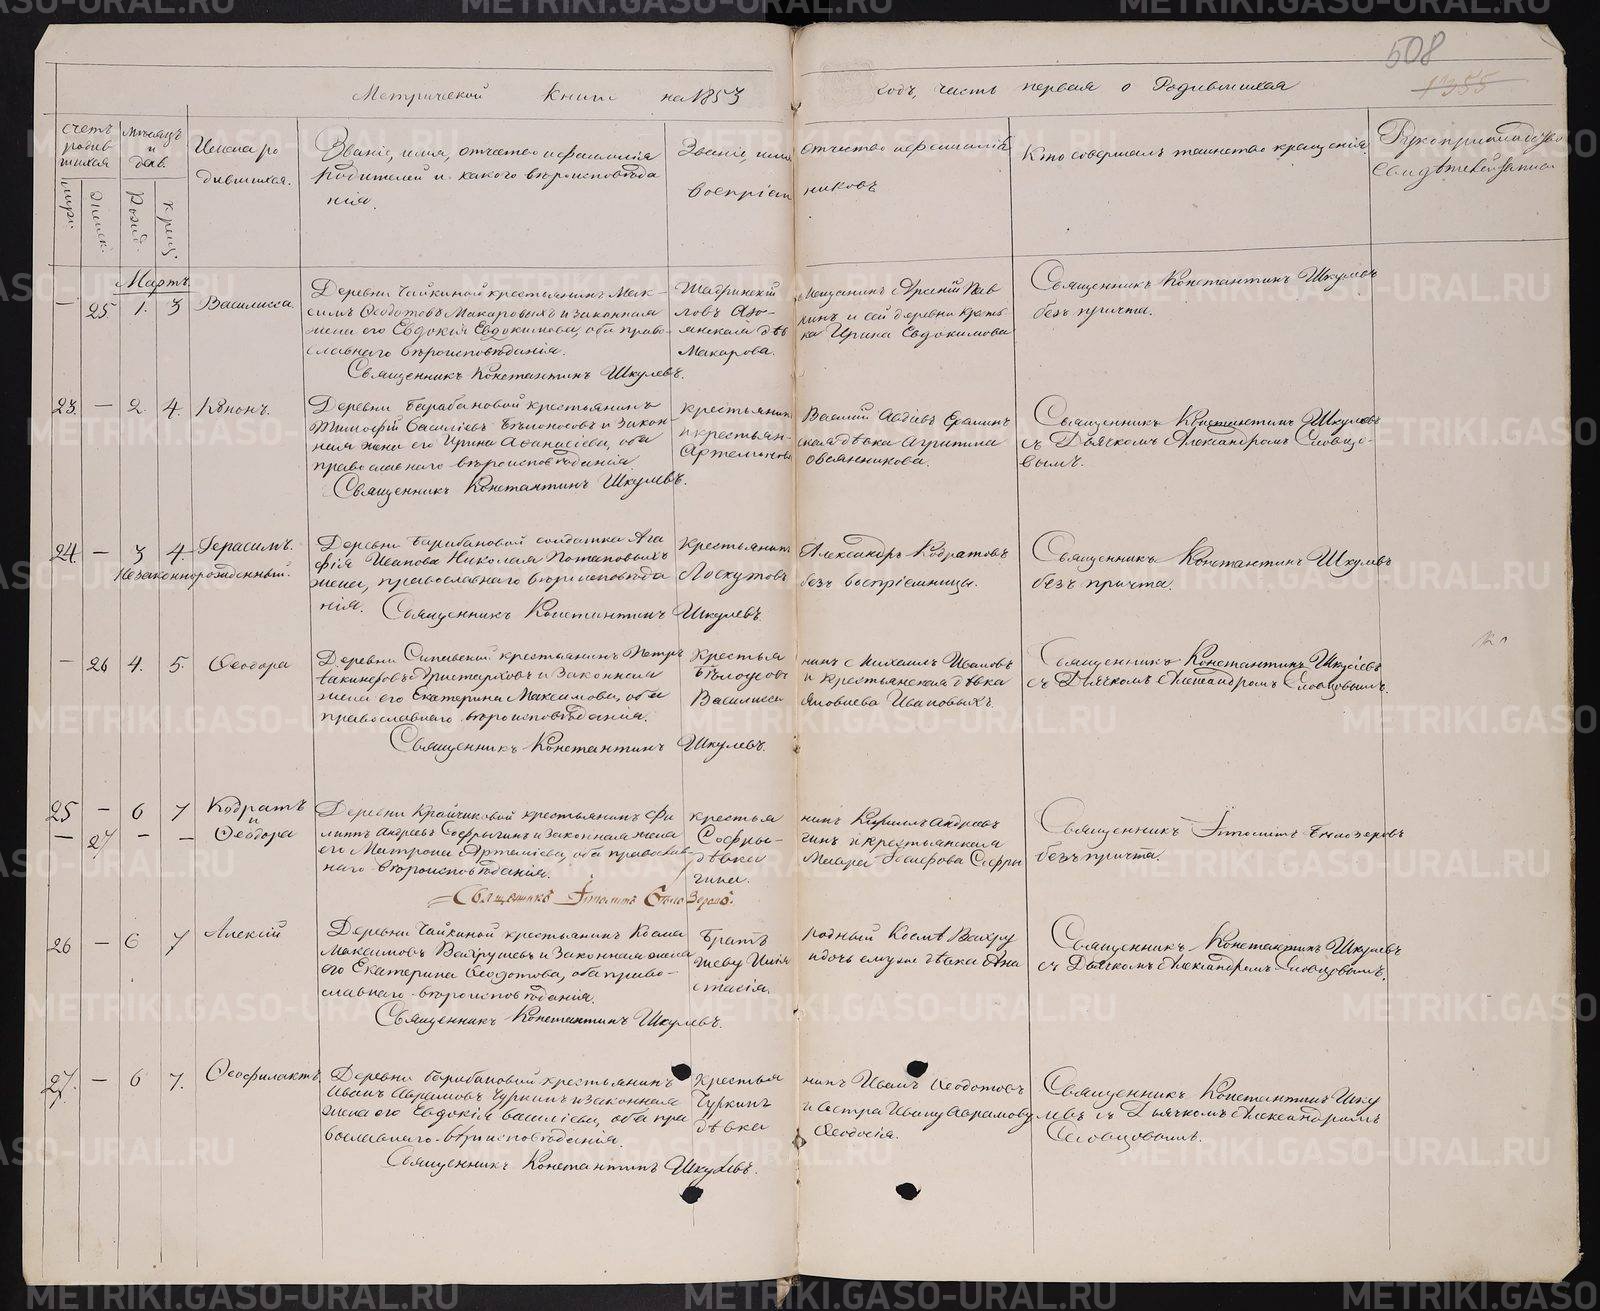 508
1355
Метрической Книги на 1853 годъ, часть первая о Родившихся
счетъ родив шихся
муж.
женск.
мѣсяцъ и день.
Рожд.
крещ.
Имена ро
дившихся.
Званіе, имя, отчество и фамилія
Родителей и какого вѣроисповѣда
нія.
Званіе, имя отчество и фамилія
воспріем никовъ
Кто совершалъ таинство крещенія.
Рукоприкладство
свидѣтелей записи
Мартъ
— 25 1. 3 Василисса.
Деревни Чайкиной крестьянинъ Мак-
симъ Ѳеодотовъ Макаровыхъ и законная
жена его Евдокія Евдокимова, оба право-
славнаго вѣроисповѣданія.
Священникъ Константинъ Шкулевъ.
Шадринскій мѣщанинъ Арсеній Пав
ловъ и сей деревни кресть
янская дѣвка Ирина Евдокимова
Макарова.
Священникъ Константинъ Шкулевъ
безъ причта.
23. — 2. 4. Кѵнонъ.
Деревни Барабановой крестьянинъ
Тимофій Василіевъ Бѣлоносовъ и закон
ная жена его Ирина Аѳанасіева, оба
православнаго вѣроисповѣданія.
Священникъ Константинъ Шкулевъ.
крестьянинъ Василій Авдіевъ
и крестьян- ская дѣвка Агрипина
Артемонова Овсянникова.
Священникъ Константинъ Шкулевъ
съ Дьячкомъ Александромъ Словцо-
вымъ.
24. — 3 4. Герасимъ.
Незаконнорожденный.
Деревни Барабановой солдатка Ага
фія Иванова Николая Потаповыхъ
жена, православнаго вѣроисповѣда
нія. Священникъ Константинъ Шкулевъ.
Крестьянинъ Александръ Кодратовъ
Лоскутовъ безъ воспріемницы.
Священникъ Константинъ Шкулевъ
безъ причта.
— 26 4. 5. Ѳеодора
крестьянинъ Петръ
и Законная
жена его Екатерина Максимова, оба
православнаго вѣроисповѣданія.
Священникъ Константинъ Шкулевъ.
Крестья нинъ Михаилъ Ивановъ
Бѣлоусовъ и крестьянская дѣвка
Василисса Яковлева Ивановыхъ.
Священникъ Константинъ Шкулевъ
съ Дьячкомъ Александромъ Словцовымъ.
25 — 6 7 Кодратъ
и
— 27 — — Ѳеодора
Деревни Крайчиковой крестьянинъ Фи
липпъ Андреевъ Софрыгинъ и законная жена
его Матрона Артеміева, оба православ
наго вѣроисповѣданія.
Священникъ Ѵпполитъ Бѣлозеровъ.
крестья нинъ Кириллъ Андреевъ
Софры- гинъ и крестьянская
дѣвка Марья Іосифова Софры
гина.
Священникъ Ѵпполитъ Бѣлозеровъ
безъ причта.
26 — 6 7 Алексій
Деревни Чайкиной крестьянинъ Косма
Максимовъ Вахрушевъ и Законная жена
его Екатерина Ѳеодотова, оба право-
славнаго вѣроисповѣданія.
Священникъ Константинъ Шкулевъ.
Братъ родный Космѣ Вахру
шеву и дочь ему же дѣвка Ана
стасія.
Священникъ Константинъ Шкулевъ
съ Дьячкомъ Александромъ Словцовымъ.
27. — 6 7. Ѳеофилактъ
Деревни Барабановой крестьянинъ
Иванъ Аврамовъ Чуркинъ и законная
жена его Евдокія Василіева, оба пра
вославнаго вѣроисповѣданія.
Священникъ Константинъ Шкулевъ.
Крестья нинъ Иванъ Ѳеодотовъ
Чуркинъ и сестра Ивану Аврамову
дѣвка Ѳеодосія.
Священникъ Константинъ Шку
левъ съ Дьячкомъ Александромъ
Словцовымъ.
METRIKI.GASO-URAL.RU